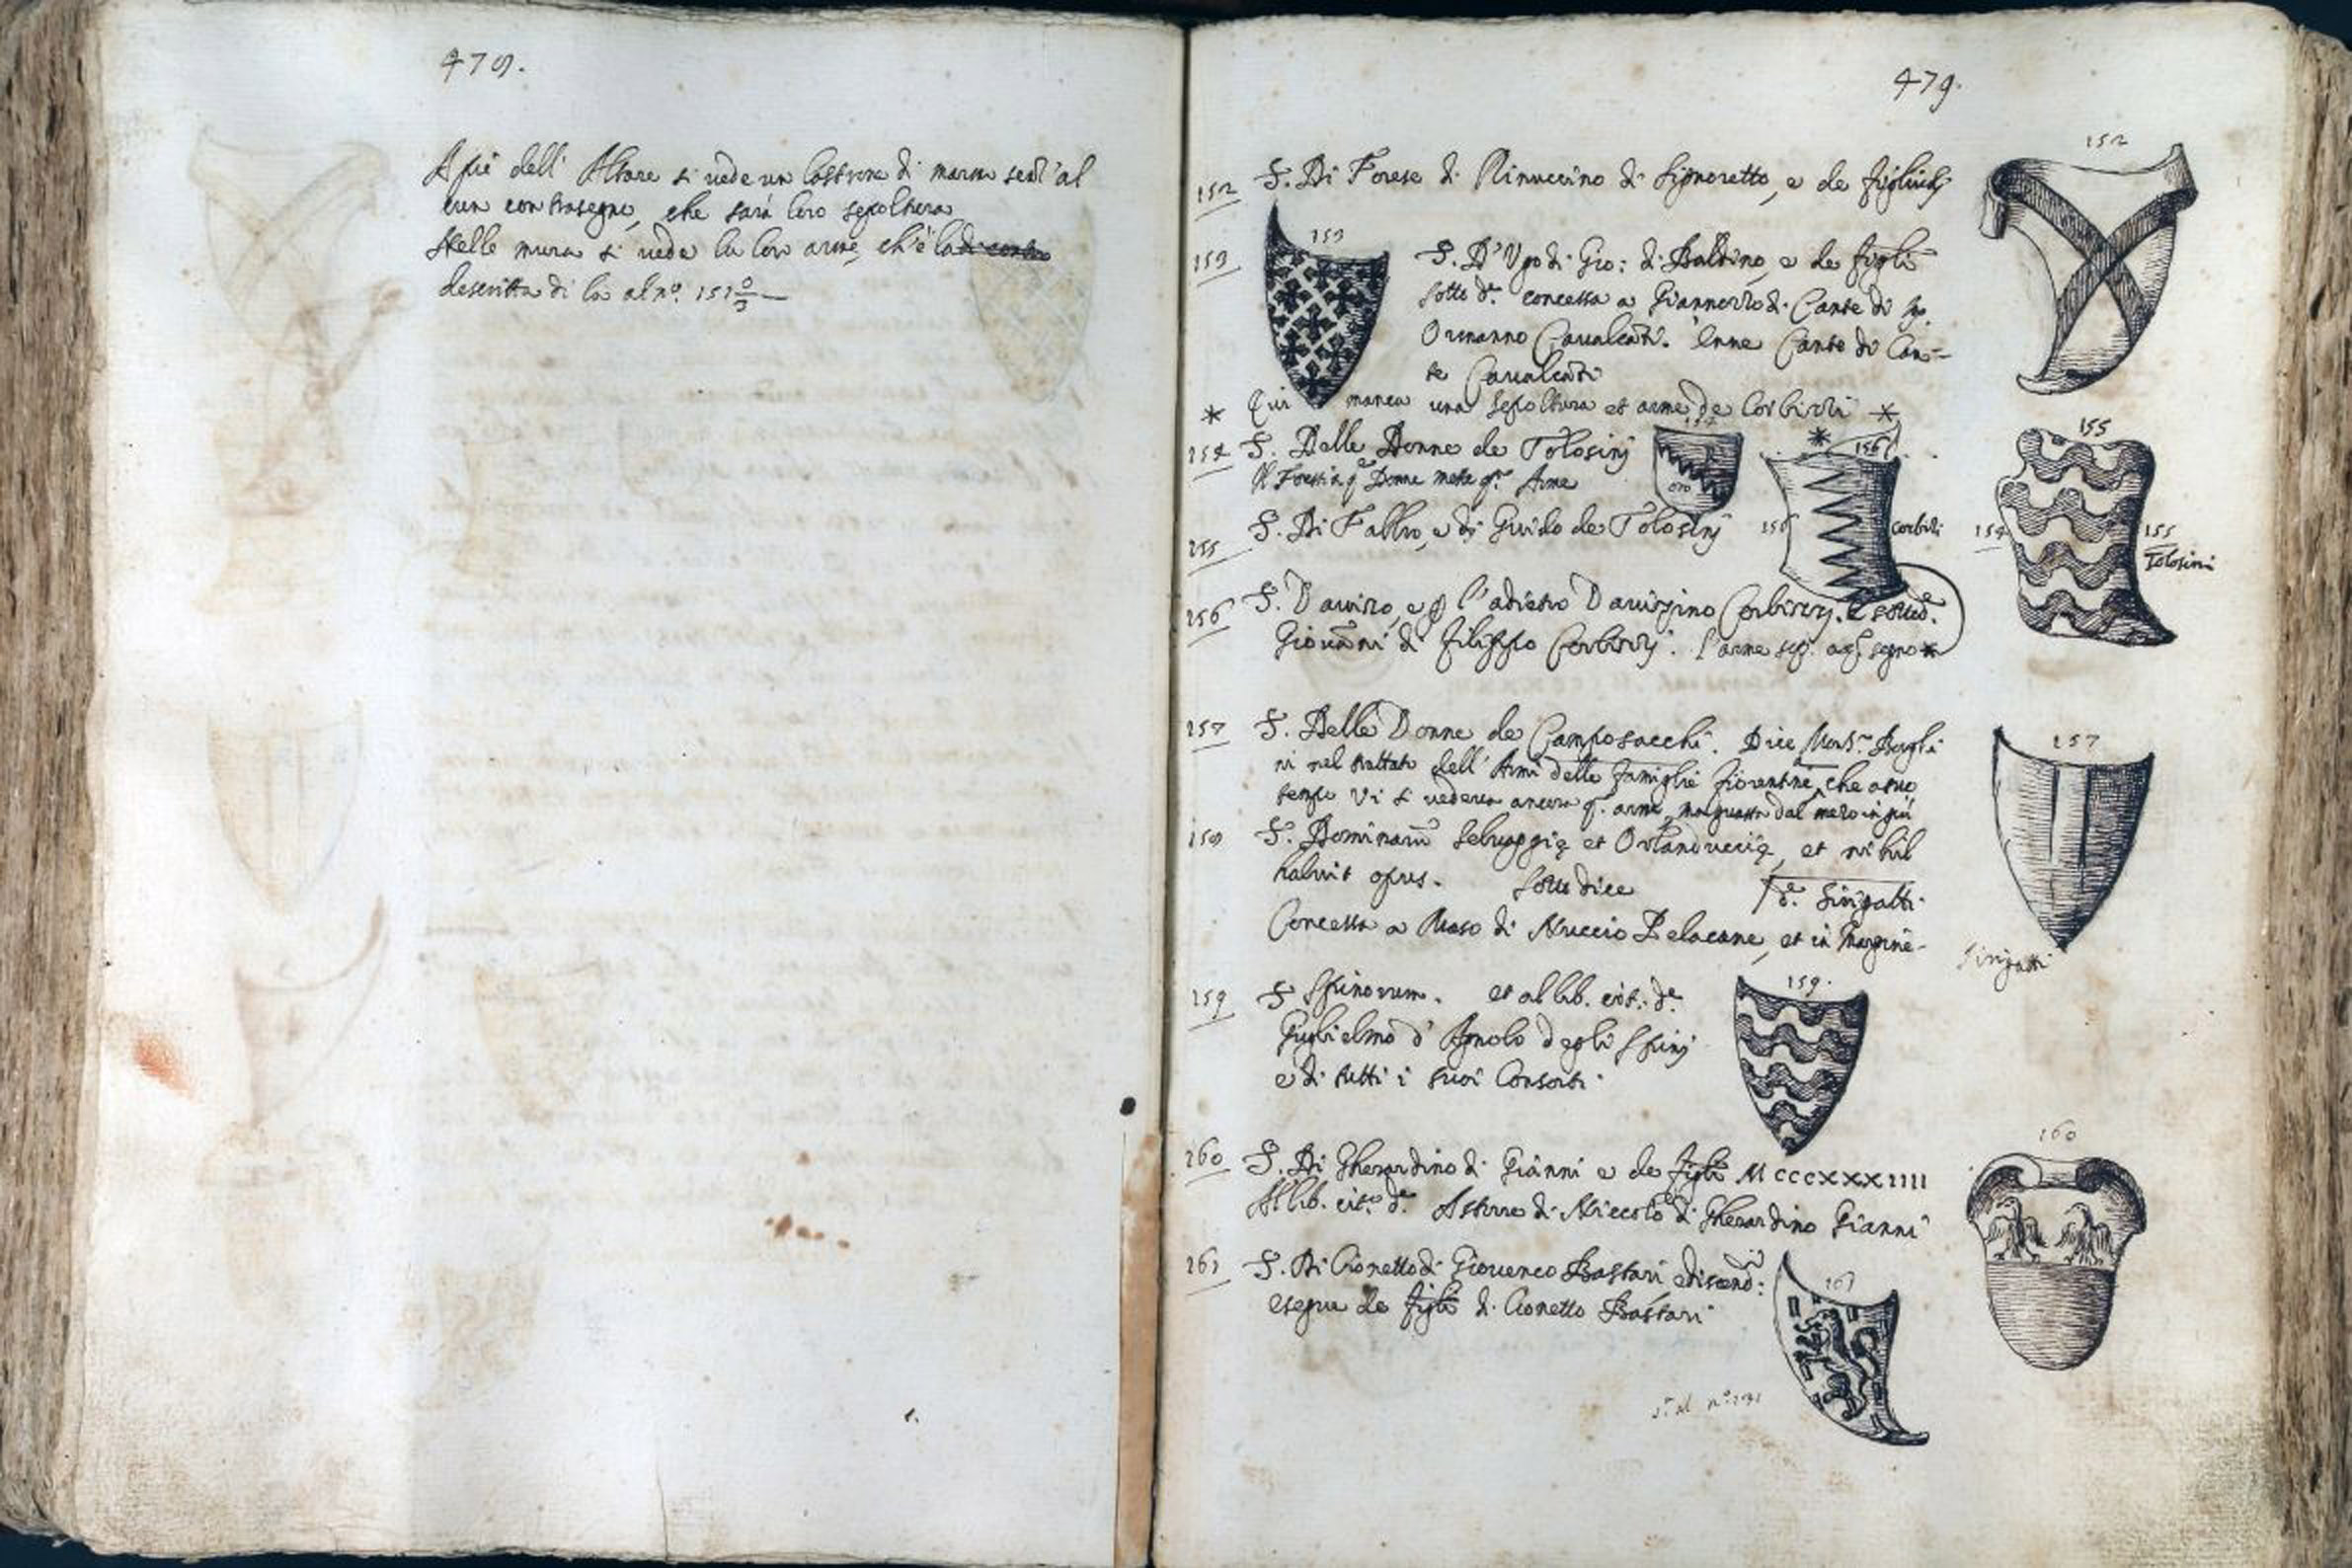 478.
A piè dell' Altare si vede un lastrone di marmo senz' al
cun contrasegno, che sarà loro sepoltura
Nelle mura si vede la loro arme, ch'è la di contro
descritta di la al nº. 151
479.
152 S. Di Forese di Rinuccino di Signoretto, e de figliuoli
152
153 S. D'Ugo di Gio: di Baldino, e de figli
153
sotto dᵉ. concessa a Giannozzo di Cante di
Ormanno Cavalcanti. Cante di Can=
te Cavalcanti
* Qui manca una sepoltura et arme de Corbizzi *
154 S. Delle Donne de Tolosinj
Donne mette Arme
oro
155 S. Di Fabbro, e di Guido de Tolosinj
*
156
Corbizi
155
154
155
Tolosini
156 S. Davizo, e l'adietro Davizino Corbizzj. E sottodᵉ.
Giovanni di Filippo Corbizzj. l'arme segno *
157 S. Delle Donne de Camposacchi. Dice Monsʳ. Borghi
ni nel trattato dell' Armi delle famiglie fiorentine, che a suo
tempo vi si vedeva ancora q. arme, ma guasta dal mezo in giù
157
158 S. Dominarum Selvaggię et Orlanduccię, et nihil
habuit opus. Sotto dice dᵉ. Sirigatti
Concessa a Maso di Nuccio Pelacane, et in margine
Sirigatti
159 S Spinorum. et al lib. cit. dᵉ
159.
Guglielmo d' Agnolo degli Spinj
e di tutti i suoi Consorti.
160 S. Di Gherardino di Gianni e de figli MCCCXXXIIII
Al lib. citº. dᵉ. Astorre di Niccolò di Gherardino Gianni
160
161 S. Di Cionetto di Giovenco Bastari
e segue de figli di Cionetto Bastari
161
al nº